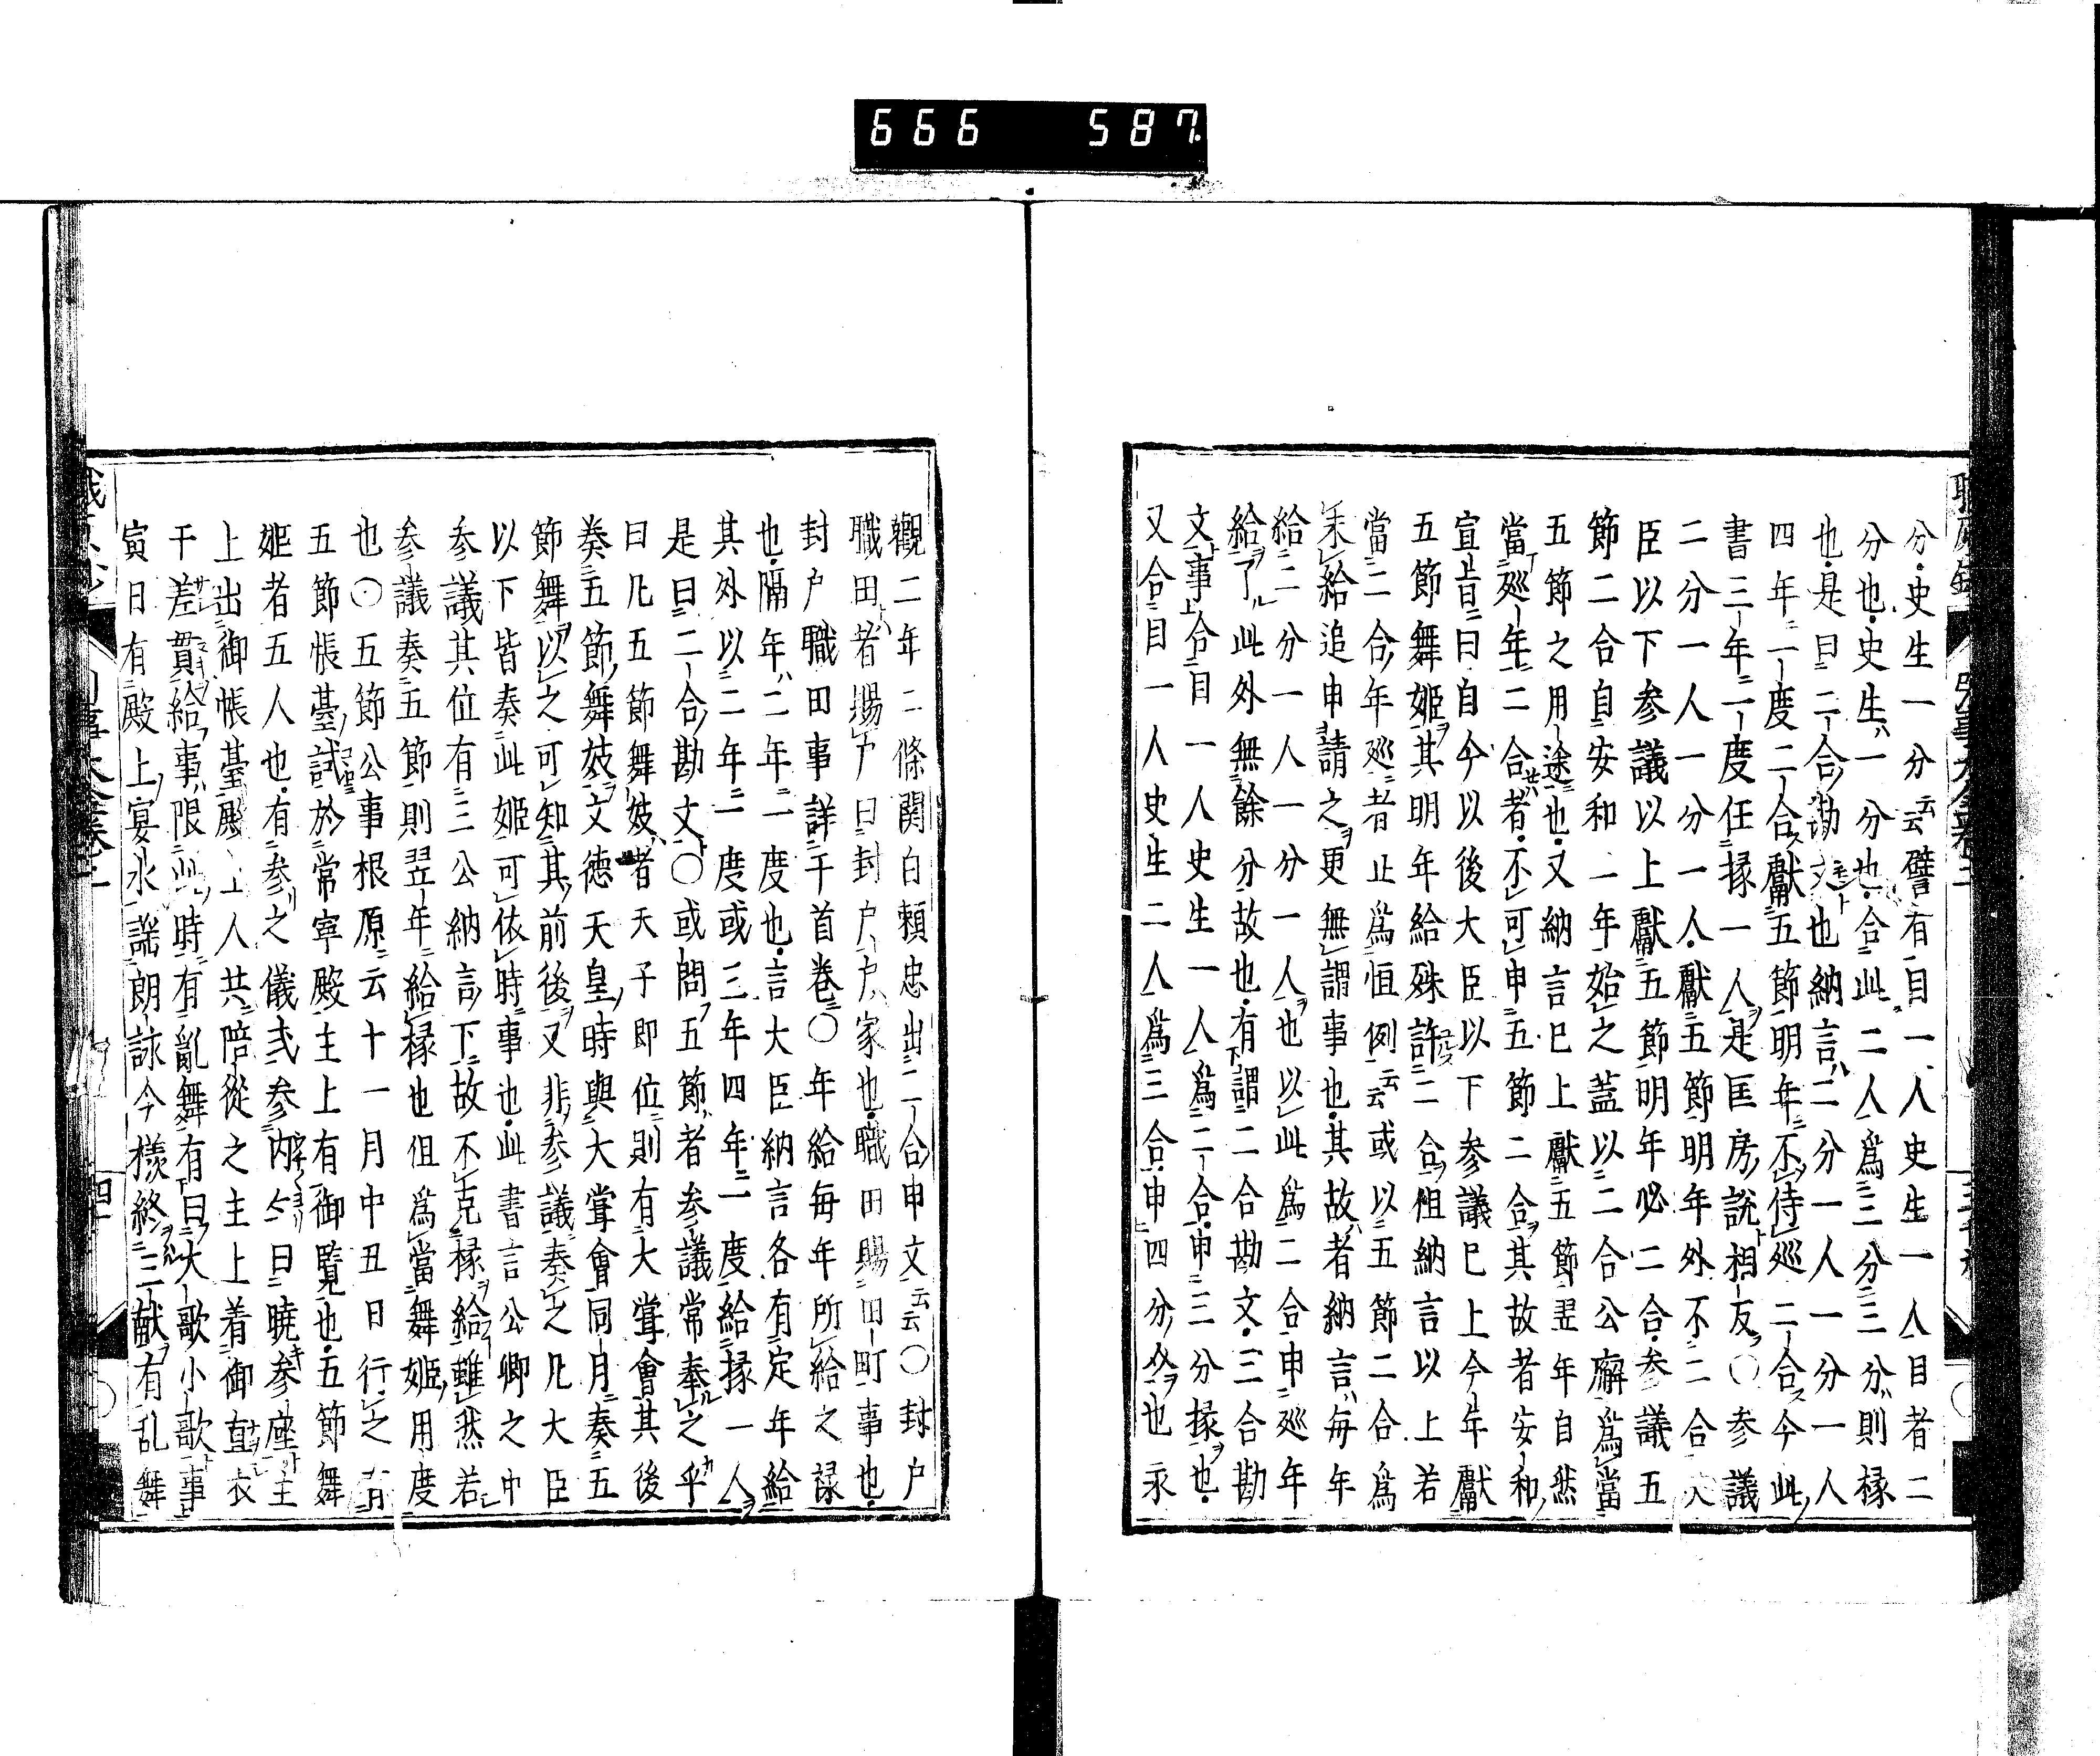 666 587
分史生一分云云譬有目一人史生一人目者二
分也史生一分也合此二人為三分三分則掾
也是曰二合勘文也納言二分一人一分一人
四年一度二合獻五節明年不待巡二合今此
書三年二度任掾一人是匡房說相反〇参議
二分一人一分一人獻五節明年外不二合
臣以下参議以上獻五節明年必二合参議五
節二合自安和一年始之蓋以二合公廨為當
五節之用途也又納言已上獻五節翌年自然
當巡年二合者不可申五節二合其故者安和
宣旨曰自今以後大臣以下参議已上今年獻
五節舞姬其明年給殊許二合但納言以上若
當二合年巡者止為恒例云云或以五節二合為
未給追申請之更無謂事也其故者納言每年
給二分一人一分一人也以此為二合申巡年
給了此外無餘分故也有謂二合勘文三合勘
文事合目一人史生一人為二合申三分掾也
又合目一人史生二人為三合申四分也永
觀二年二條関白賴忠出二合申文云云〇封户
職田者賜户曰封户户家也職田賜田町事也
封户職田事詳于首卷〇年給每年所給之禄
也隔年二年一度也言大臣納言各有定年給
其外以二年一度或三年四年一度給掾一人
是曰二合勘文〇或問五節者参議常奉之乎
曰凡五節舞妓者天子即位則有大嘗會其後
奏五節舞妓文德天皇時與大嘗會同月奏五
節舞以之可知其前後又非参議奏之凡大臣
以下皆奏此姬可依時事也此書言公卿之中
参議其位有三公納言下故不足掾給雖然若
参議奏五節則翌年給掾也但為當舞姬用度
也〇五節公事根原云十一月中丑日行之有
五節帳臺試於常寧殿主上有御覧也五節舞
姬者五人也有参之儀式参內今曰曉参座主
上出御帳臺殿上人共陪從之主上着御直衣
于差貫給事限此時有亂舞有曰大歌小歌事
寅日有殿上宴水謡朗詠今樣終三献有乱舞